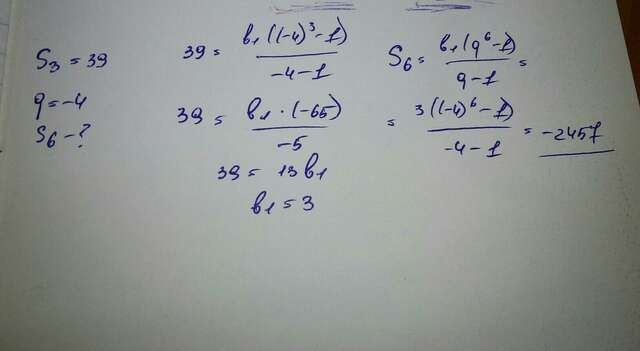 S₃ = 39
q = -4
S₆ - ?
39 = b₁((-4)³-1) / -4-1
39 = b₁ · (-65) / -5
39 = 13b₁
b₁ = 3
S₆ = b₁(q⁶-1) / q-1 =
= 3((-4)⁶-1) / -4-1 = -2457